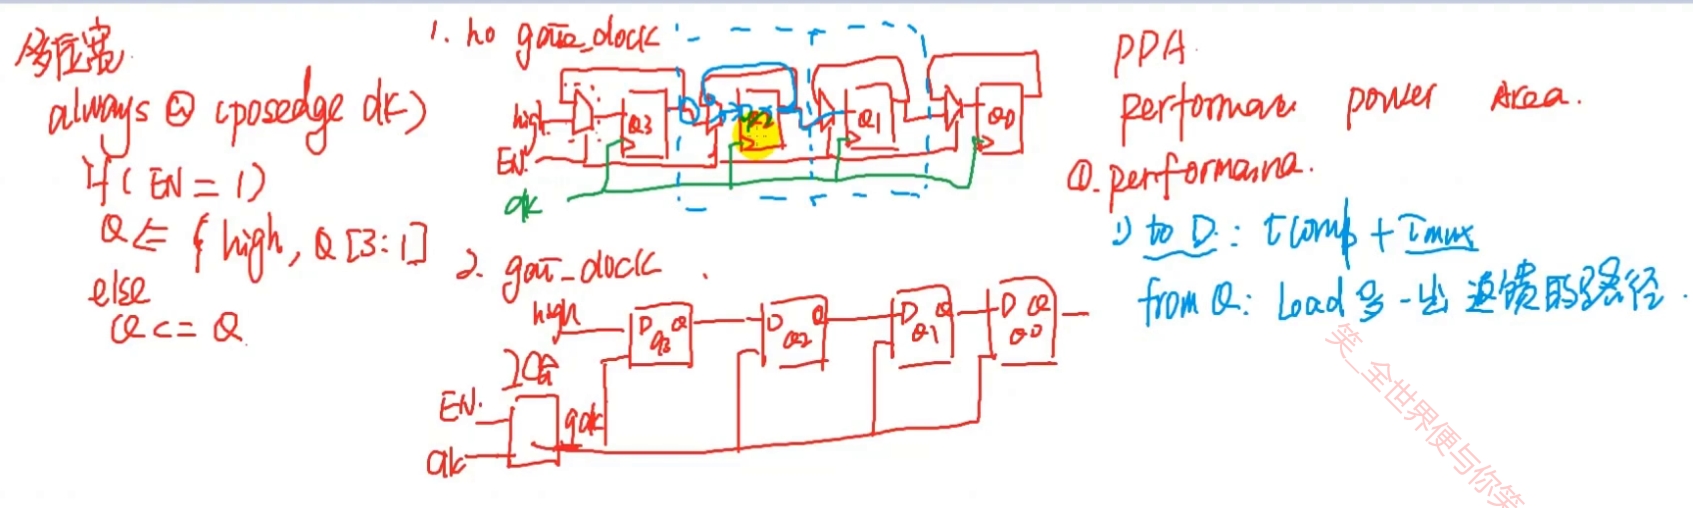 多位宽
always @ (posedge clk)
if (EN = 1)
Q <= { high, Q [3:1]
else
Q <= Q
1. no gate_clock
high
EN.
clk
Q3
Q2
Q1
Q0
2. gate_clock
high
D Q
Q3
D Q
Q2
D Q
Q1
D Q
Q0
ICG
EN.
gclk
clk
PPA.
performance power Area.
①. performance.
1) to D: Tcomb + Tmux
from Q: Load 多一出 返馈的路径.
笑_全世界便与你笑